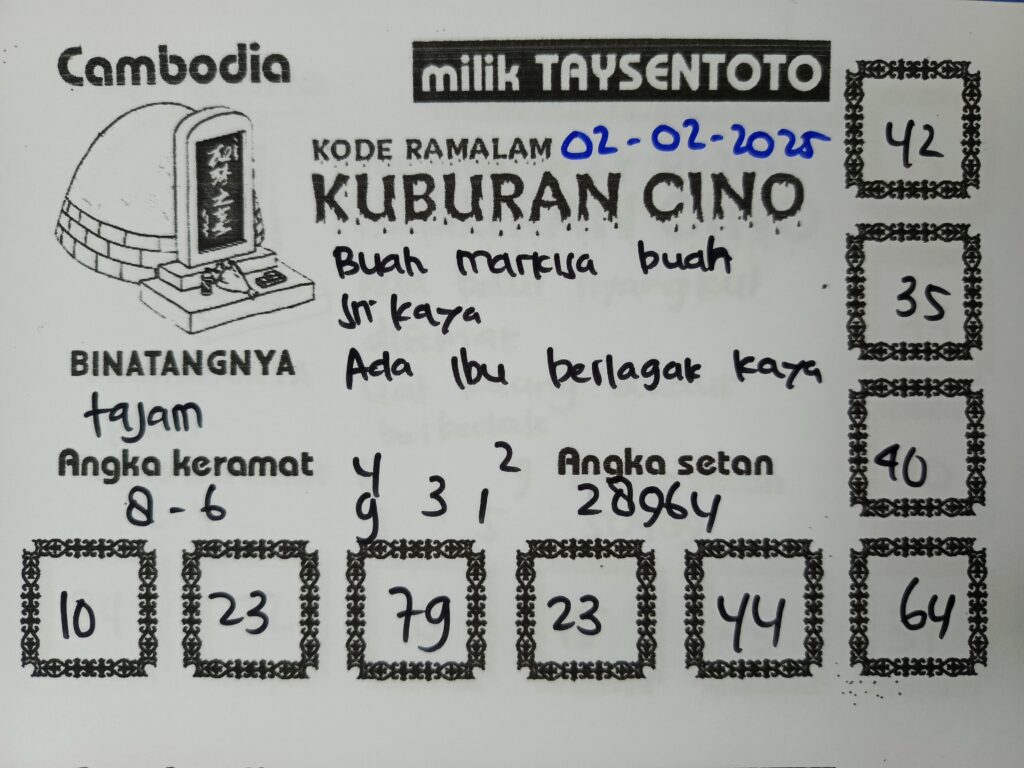 Cambodia
milik TAYSENTOTO
KODE RAMALAM 02-02-2025
KUBURAN CINO
Buah markisa buah
sri kaya
Ada Ibu berlagak kaya
BINATANGNYA
tajam
Angka keramat
8-6
4 2
9 3 1
Angka setan
28964
42
35
40
10 23 79 23 44 64